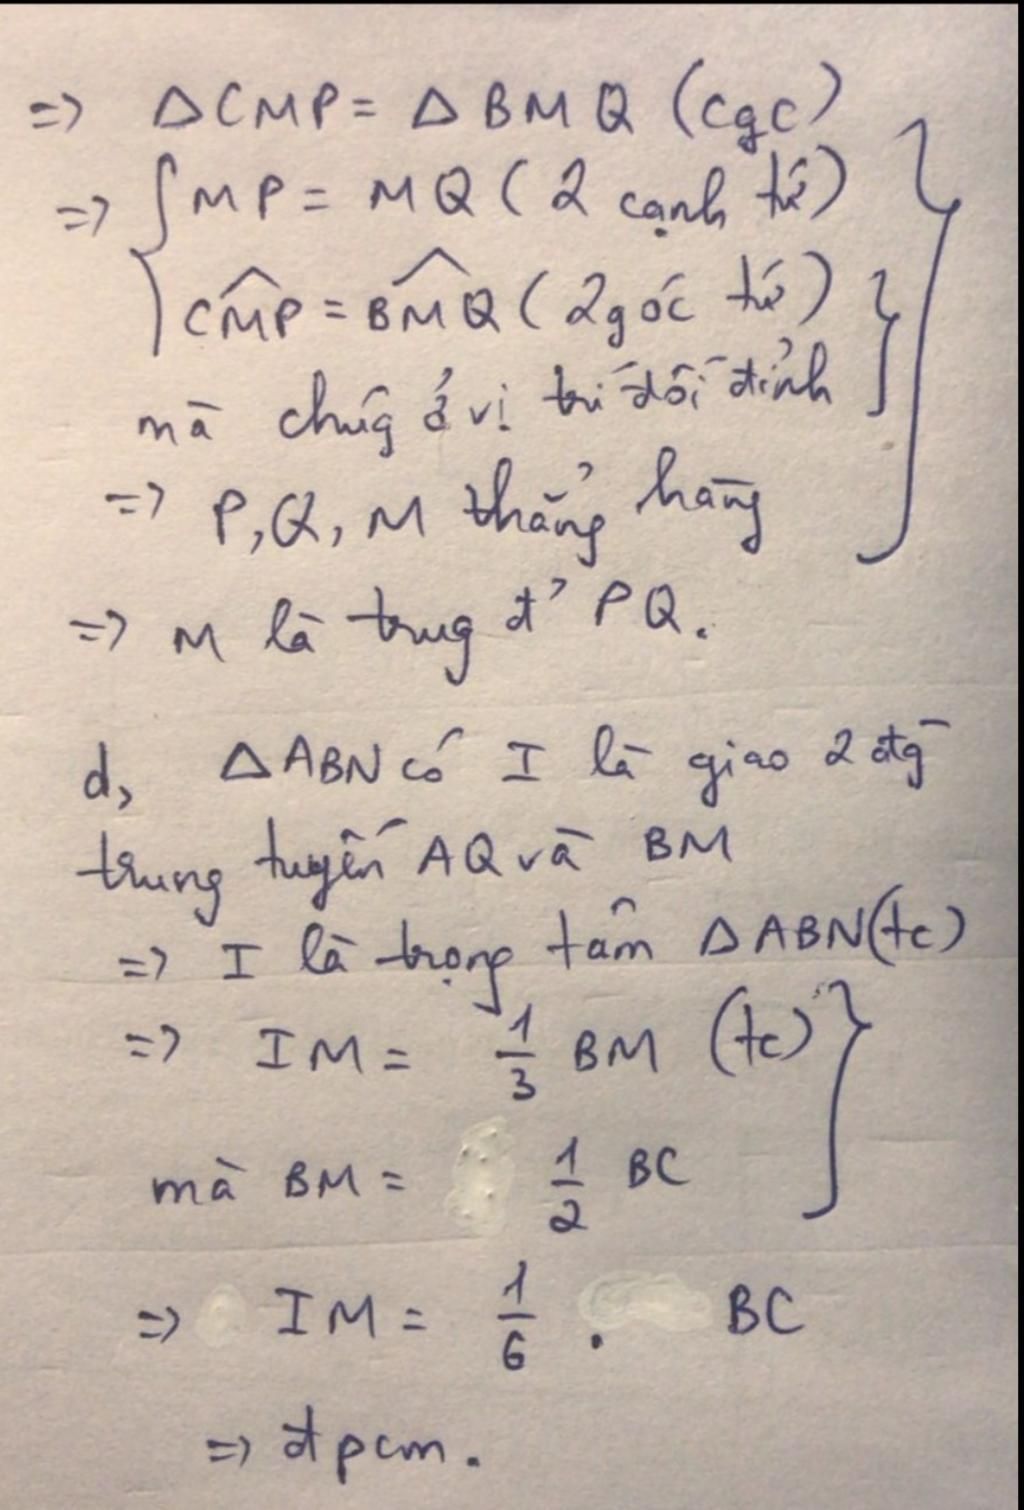 => ΔCMP = ΔBMQ (cgc)
=> { MP = MQ (2 cạnh tứ)
CMP̂ = BMQ̂ (2 góc tứ)
mà chúg ở vị trí đối đỉnh
=> P, Q, M thẳng hàng
=> M là trug đ' PQ.
d, ΔABN có I là giao 2 đtg
trung tuyến AQ và BM
=> I là trọng tâm ΔABN (tc)
=> IM = 1/3 BM (tc)
mà BM = 1/2 BC
=> IM = 1/6 . BC
=> đpcm.